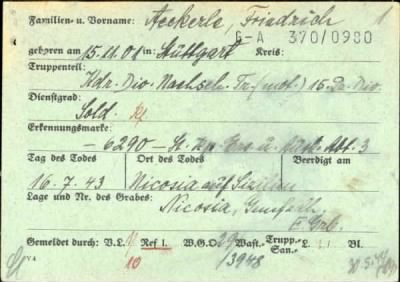 Familien- u. Vorname: Aeckerle, Friedrich 1
G-A 370/0980
geboren am 15.11.01 in Stuttgart Kreis:
Truppenteil:
Kdr. Div. Nachsch. Tr. (mot.) 15. Pz. Div.
Dienstgrad:
Sold.
Erkennungsmarke:
- 6290 - St. Kp. Ers. u. Abt. 3
Tag des Todes Ort des Todes Beerdigt am
16.7.43 Nicosia auf Sizilien
Lage und Nr. des Grabes:
Nicosia, E. Grb.
Gemeldet durch: V.L. Ref I. W.G.O. 29 Wast.- Trupp.- San.- L. Bl.
10 /3948
V 4